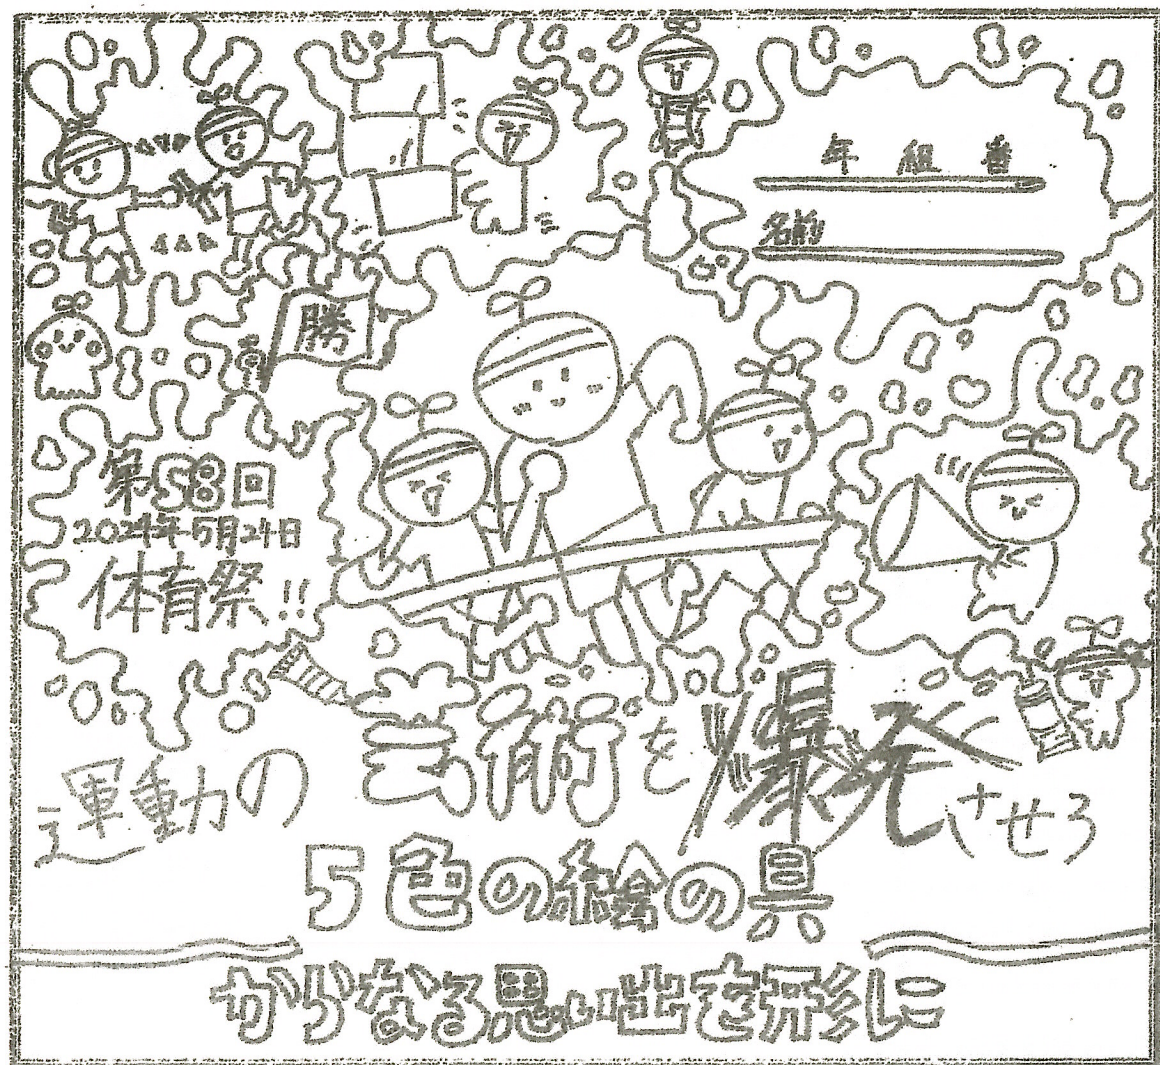 年 組 番
名前
勝
第58回
2024年5月24日
体育祭!!
運動の芸術を爆発させろ
5色の絵の具
からなる思い出を形に